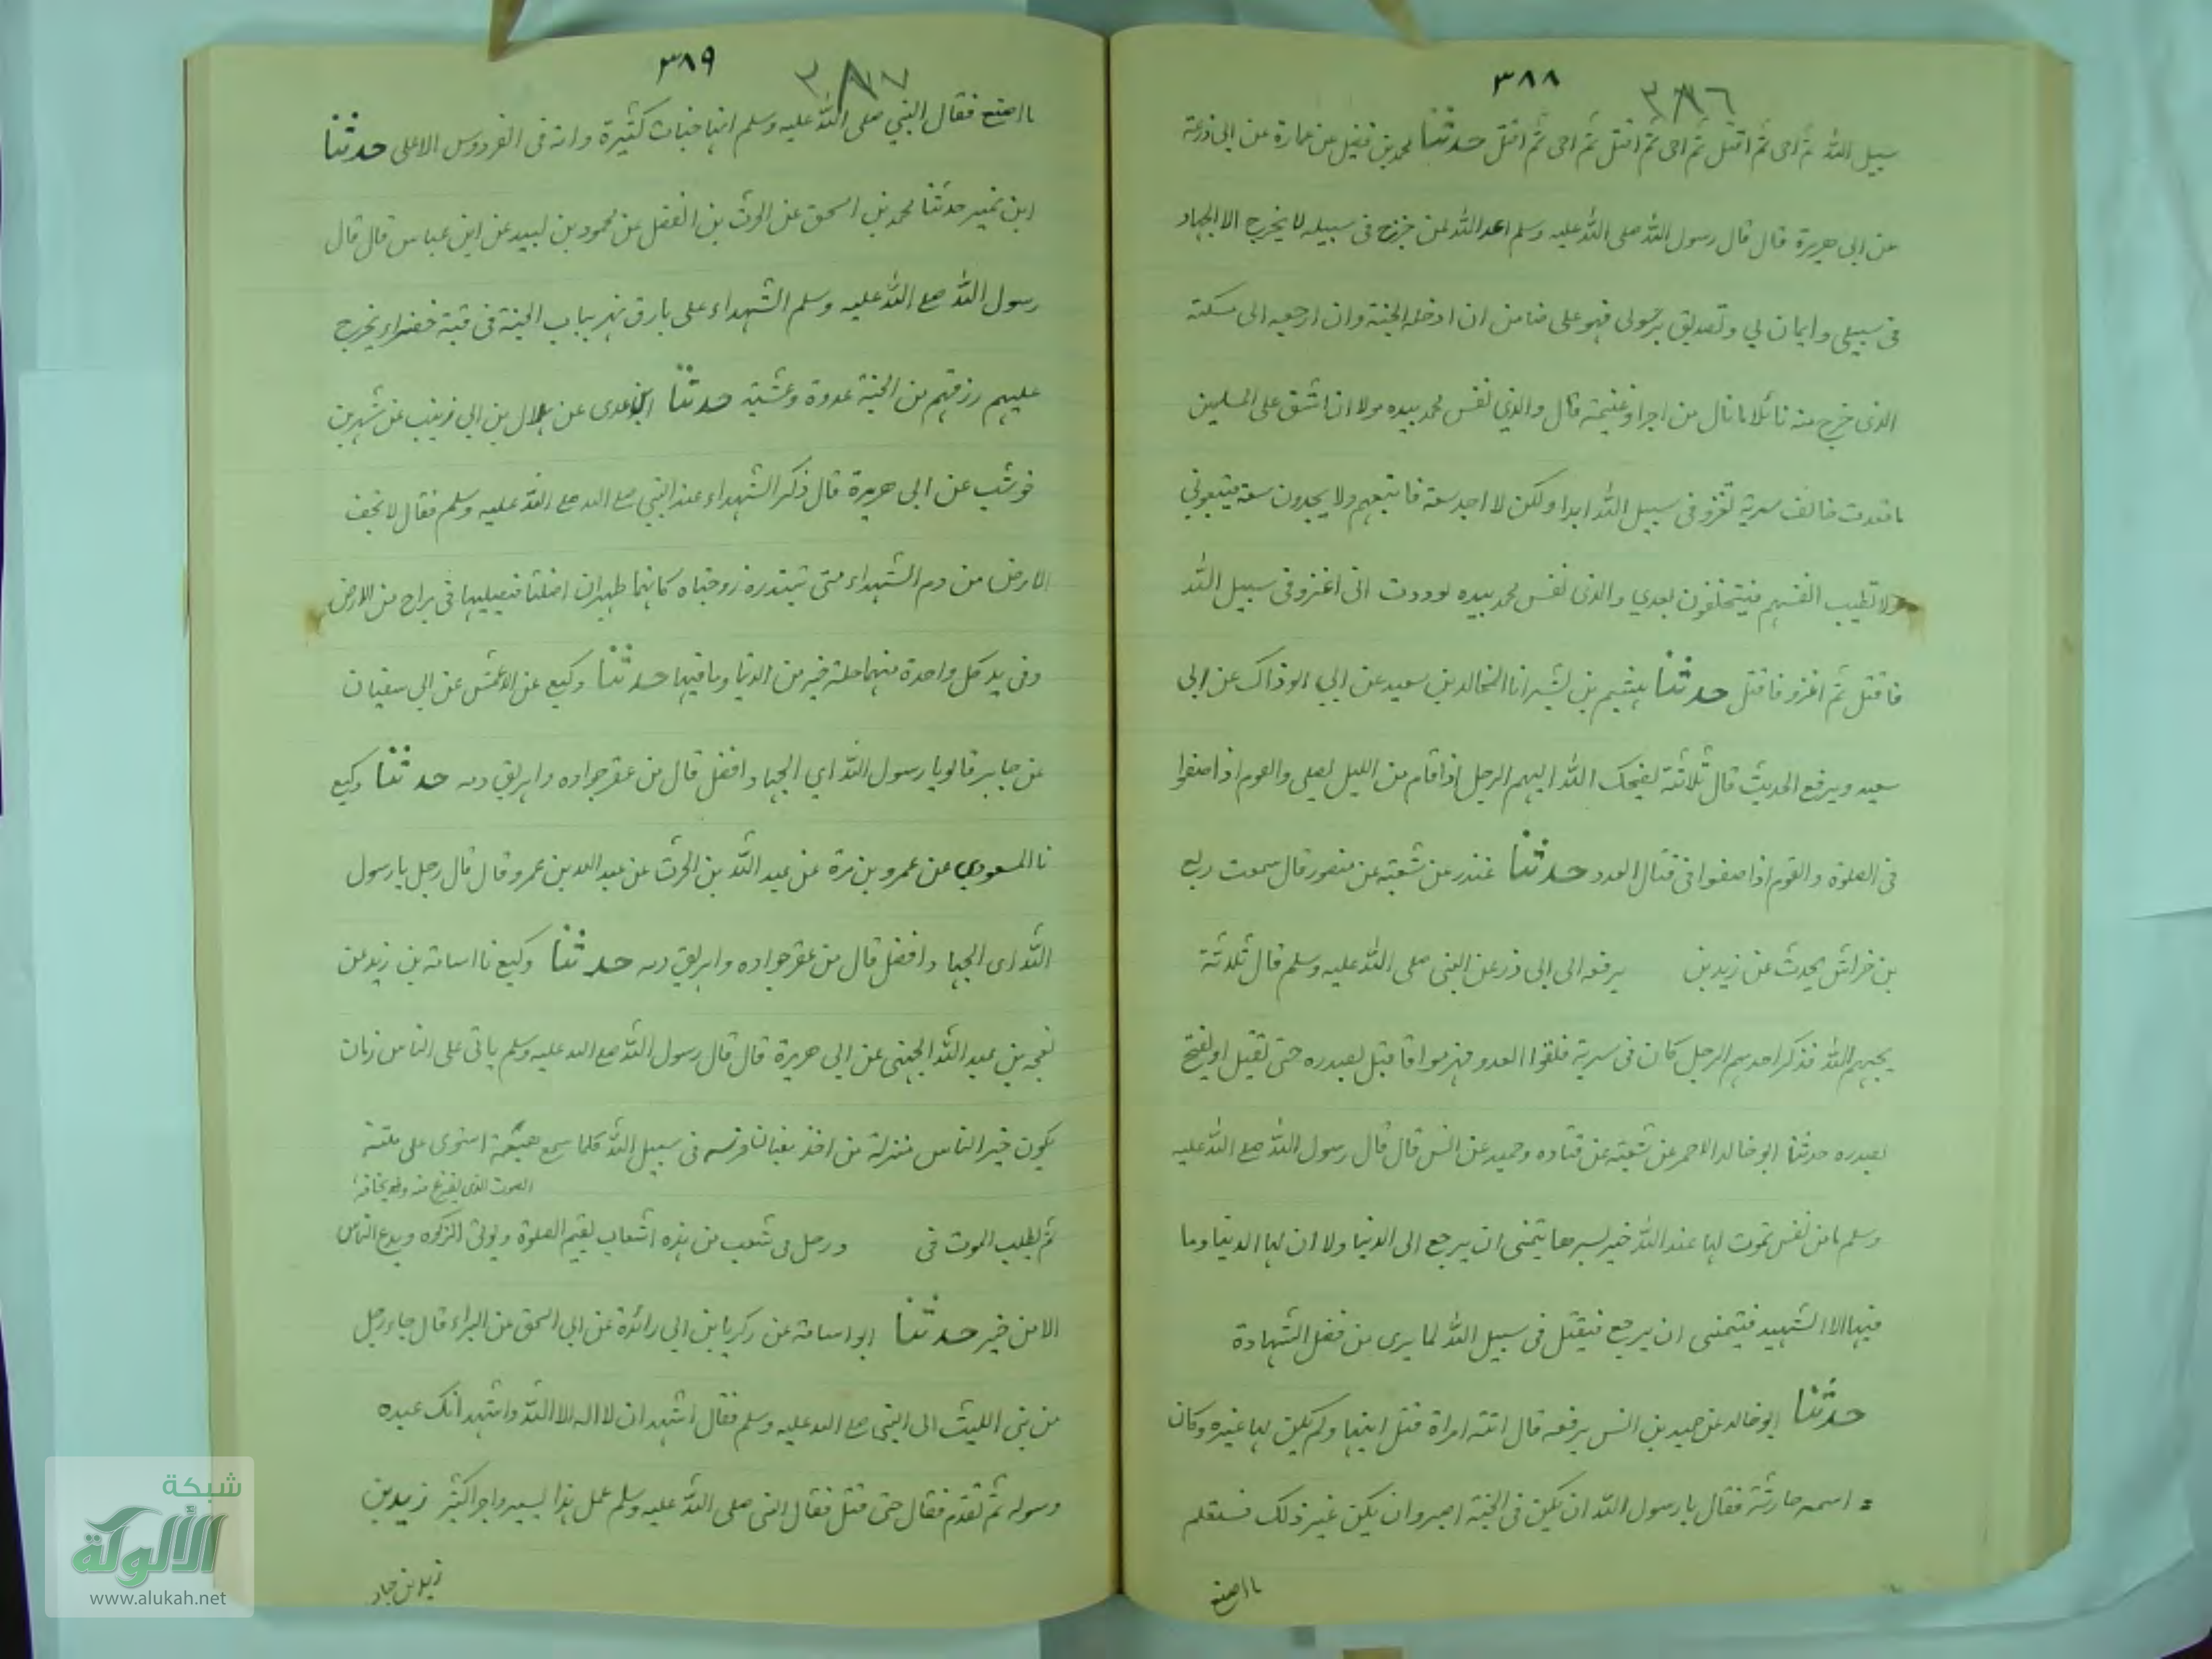 ٣٨٨
٣٨٦
سبيل الله ثم احى ثم اقتل ثم احى ثم اقتل ثم احى ثم اقتل حدثنا محمد بن فضيل عن عمارة عن ابى زرعة
عن ابى هريرة قال قال رسول الله صلى الله عليه وسلم اعد الله لمن خرج فى سبيله لا يخرج الا الجهاد
فى سبيلي وايمان بي وتصديق برسولى فهو على ضامن ان ادخله الجنة وان ارجعه الى مسكنه
الذى خرج منه نائلا ما نال من اجر او غنيمة قال والذي نفس محمد بيده لولا ان اشق على المسلمين
ما قعدت خالف سرية تغزو فى سبيل الله ابدا ولكن لا اجد سعة فاتبعهم ولا يجدون سعة فيتبعوني
ولا تطيب انفسهم فيتخلفون بعدي والذى نفس محمد بيده لوددت انى اغزو فى سبيل الله
فاقتل ثم اغزو فاقتل حدثنا هشيم بن بشير انا المخالد بن سعيد عن ابي الوذاك عن ابى
سعيد ويرفع الحديث قال ثلاثة يضحك الله اليهم الرجل اذا قام من الليل يصلى والقوم اذا صفوا
فى الصلوة والقوم اذا صفوا فى قتال العدد حدثنا غندر عن شعبة عن منصور قال سمعت ربع
بن خراش يحدث عن زيد بن يرفعه الى ابى ذر عن النبى صلى الله عليه وسلم قال ثلثة
يحبهم الله فذكر احدهم الرجل كان فى سرية فلقوا العدو فهزموا فاقبل بصدره حتى يقتل او يفتح
بصدره حدثنا ابو خالد الاحمر عن شعبة عن قتاده وحميد عن انس قال قال رسول الله صلع الله عليه
وسلم ما من نفس تموت لها عند الله خير يسرها يتمنى ان يرجع الى الدنيا ولا ان لها الدنيا وما
فيها الا الشهيد فيتمنى ان يرجع فيقتل فى سبيل الله لما يرى من فضل الشهادة
حدثنا ابو خالد عن حميد بن انس يرفعه قال اتته امراة قتل ابنها ولم يكن لها غيره وكان
= اسمه حارثة فقال يا رسول الله ان يكن فى الجنة اصبر وان يكن غير ذلك فستعلم
ما اصنع
٣٨٩
٣٨٧
ما اصنع فقال النبي صلى الله عليه وسلم انها جنات كثيرة وانه فى الفردوس الاعلى حدثنا
ابن نمير حدثنا محمد بن اسحق عن الحرث بن الفضل عن محمود بن لبيد عن ابن عباس قال قال
رسول الله صلع الله عليه وسلم الشهداء على بارق نهر بباب الجنة فى قبة خضراء يخرج
عليهم رزقهم من الجنة غدوة وعشية حدثنا ابن عدى عن هلال بن ابى زينب عن شهر بن
خوشب عن ابى هريرة قال ذكر الشهداء عند النبي صلع الله عليه وسلم فقال لا تجف
الارض من دم الشهداء حتى تبتدره زوجتاه كانهما طيران اضلتا فصيليها فى براح من الارض
وفى يد كل واحدة منهما حلة خير من الدنيا وما فيها حدثنا وكيع عن الاعمش عن ابى سفيان
عن جابر قالو يا رسول الله اي الجهاد افضل قال من عقر جواده واهريق دمه حدثنا وكيع
نا المسعودي عن عمرو بن مرة عن عبد الله بن الحرث عن عبد الله بن عمرو قال قال رجل يا رسول
الله اى الجهاد افضل قال من عقر جواده واهريق دمه حدثنا وكيع نا اسامة بن زيد عن
بعجه بن عبد الله الجهنى عن ابى هريرة قال قال رسول الله صلع الله عليه وسلم ياتى على الناس زمان
يكون خير الناس منزلة من اخذ بعنان فرسه فى سبيل الله كلما سمع هيعة استوى على متنه
الصوت الذى يفزع منه ويخافه
ثم يطلب الموت فى ورجل فى شعب من هذه الشعاب يقيم الصلوة ويوتى الزكوه ويدع الناس
الا من خير حدثنا ابو اسامة عن زكريا بن ابى زائدة عن ابى اسحق عن البراء قال جاء رجل
من بنى الليث الى النبى صلع الله عليه وسلم فقال اشهد ان لا اله الا الله واشهد انك عبده
ورسوله ثم تقدم فقال حتى قتل فقال النبى صلى الله عليه وسلم عمل هذا يسير واجر كثير زيد بن
زيد بن حباب
شبكة
الألوكة
www.alukah.net